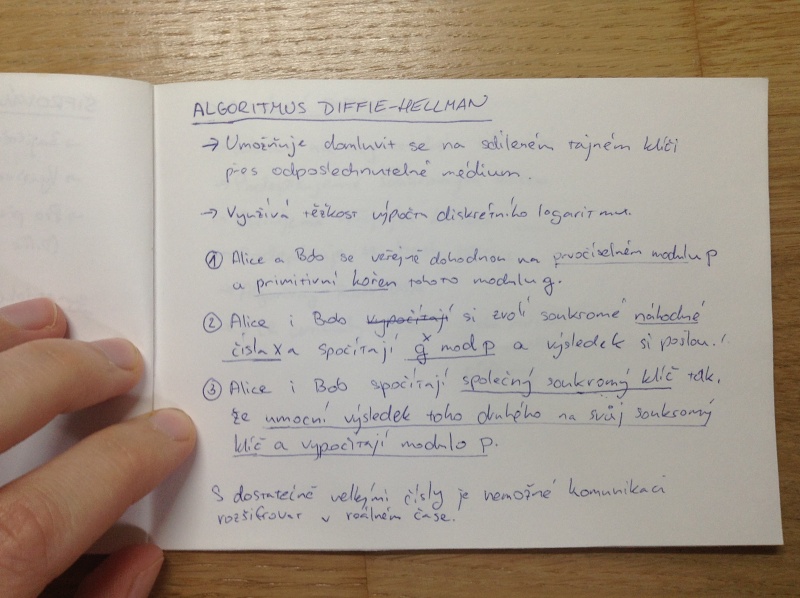 ALGORITMUS DIFFIE-HELLMAN
→ Umožňuje domluvit se na sdíleném tajném klíči
přes odposlechnutelné médium.
→ Využívá těžkost výpočtu diskrétního logaritmu.
① Alice a Bob se veřejně dohodnou na prvočíselném modulu p
a primitivní kořen tohoto modulu g.
② Alice i Bob vypočítají si zvolí soukromé náhodné
čísla x a spočítají g^x mod p a výsledek si pošlou.
③ Alice i Bob spočítají společný soukromý klíč tak,
že umocní výsledek toho druhého na svůj soukromý
klíč a vypočítají modulo p.
S dostatečně velkými čísly je nemožné komunikaci
rozšifrovat v reálném čase.